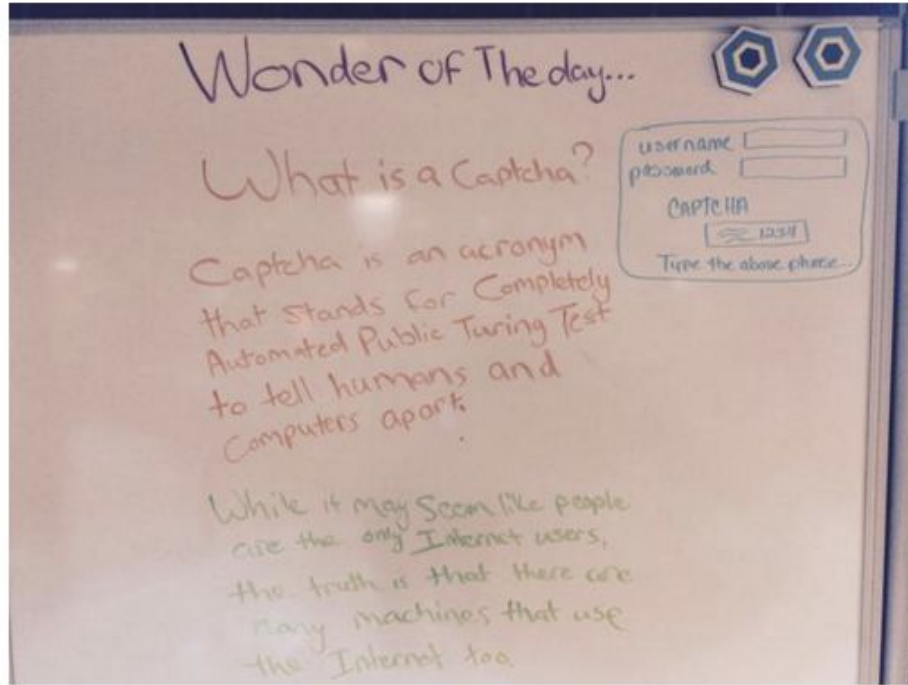 Wonder of The day...
What is a Captcha?
Captcha is an acronym
that stands for Completely
Automated Public Turing Test
to tell humans and
Computers apart.
While it may Seem like people
are the only Internet users,
the truth is that there are
many machines that use
the Internet too.
username
password
CAPTCHA
1234
Type the above phrase...